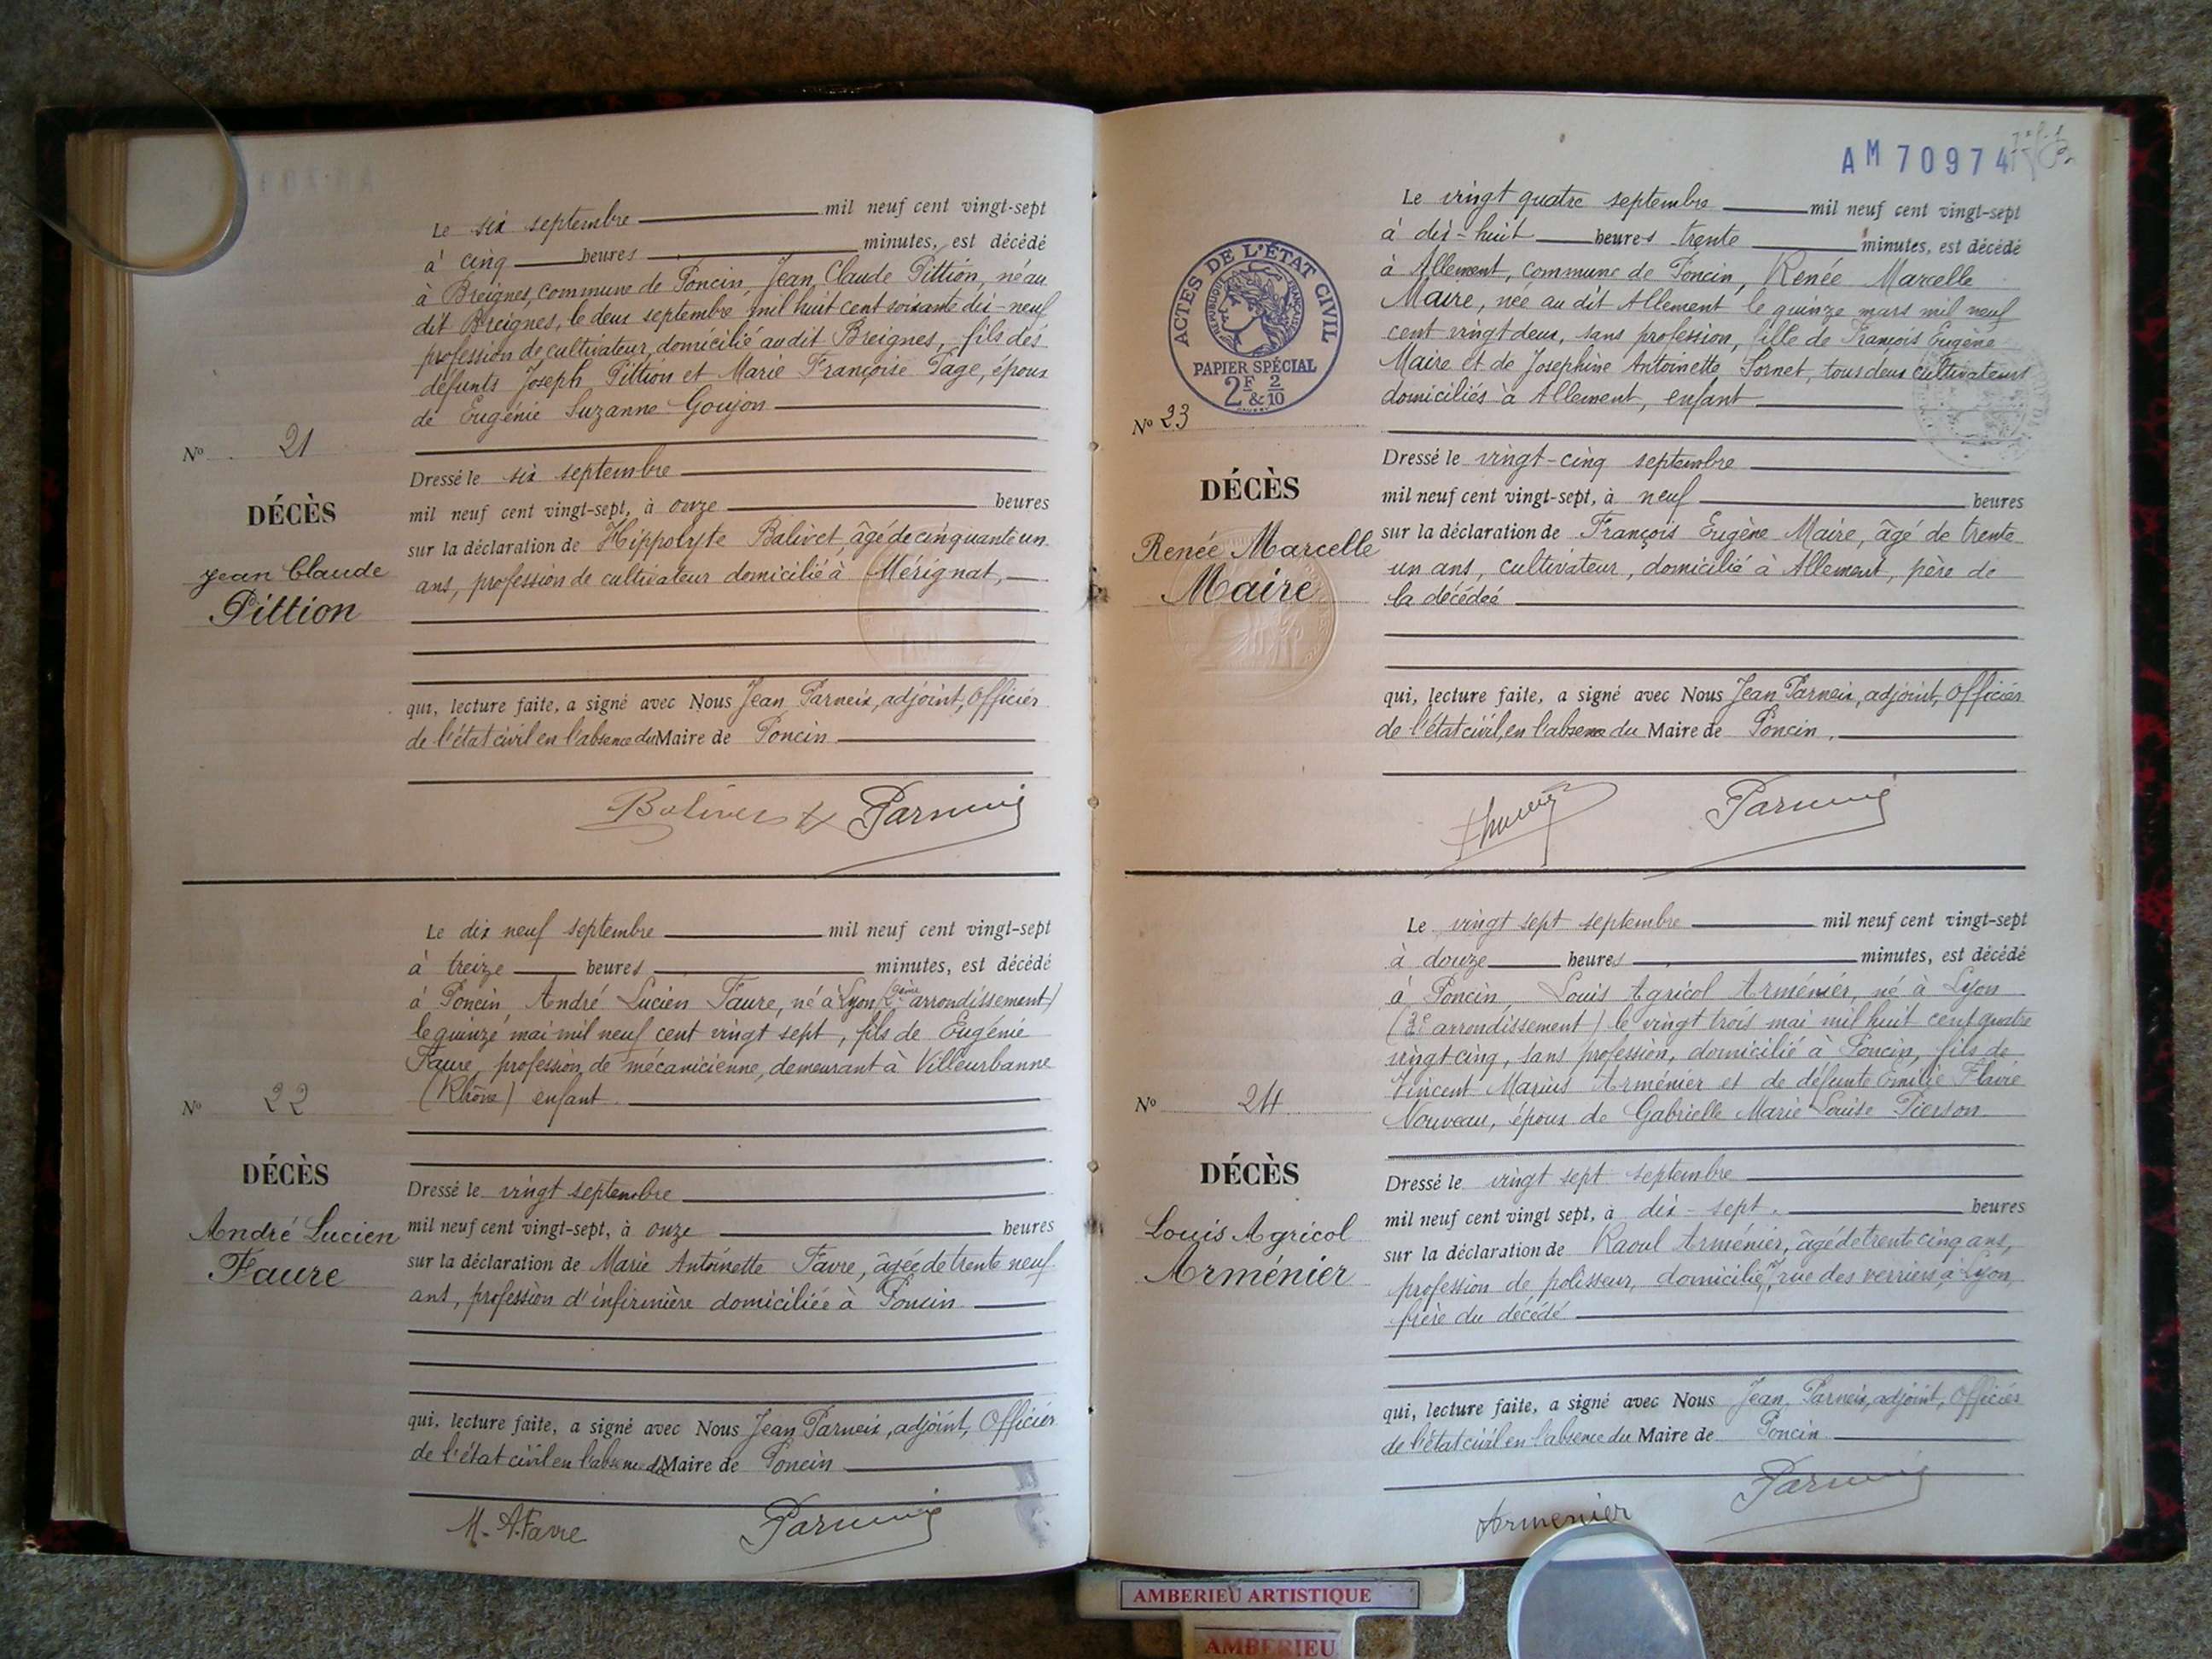 Le six septembre mil neuf cent vingt-sept
à cinq heures minutes, est décédé
à Breignes, commune de Poncin, Jean Claude Pittion, né au
dit Breignes, le deux septembre mil huit cent soixante dix-neuf
profession de cultivateur, domicilié audit Breignes, fils des
défunts Joseph Pittion et Marie Françoise Page, époux
de Eugénie Suzanne Goujon
No 21
DÉCÈS
Jean Claude
Pittion
Dressé le six septembre
mil neuf cent vingt-sept, à onze heures
sur la déclaration de Hippolyte Balivet, âgé de cinquante un
ans, profession de cultivateur domicilié à Mérignat,
qui, lecture faite, a signé avec Nous Jean Parneix, adjoint, Officier
de l'état civil en l'absence du Maire de Poncin
Le dix neuf septembre mil neuf cent vingt-sept
à treize heures minutes, est décédé
à Poncin André Lucien Faure, né à Lyon (2ème arrondissement)
le quinze mai mil neuf cent vingt sept, fils de Eugénie
Faure, profession de mécanicienne, demeurant à Villeurbanne
(Rhône) enfant
No 22
DÉCÈS
André Lucien
Faure
Dressé le vingt septembre
mil neuf cent vingt-sept, à onze heures
sur la déclaration de Marie Antoinette Favre, âgée de trente neuf
ans, profession d'infirmière domiciliée à Poncin
qui, lecture faite, a signé avec Nous Jean Parneix, adjoint, Officier
de l'état civil en l'absence du Maire de Poncin
M. A. Favre
AM 70974
ACTES DE L'ÉTAT CIVIL
RÉPUBLIQUE FRANÇAISE
PAPIER SPÉCIAL
2F & 2/10
Le vingt quatre septembre mil neuf cent vingt-sept
à dix-huit heures trente minutes, est décédé
à Allement, commune de Poncin, Renée Marcelle
Maire, née au dit Allement le quinze mars mil neuf
cent vingt deux, sans profession, fille de François Eugène
Maire et de Josephine Antoinette Sornet, tous deux cultivateurs
domiciliés à Allement, enfant
No 23
DÉCÈS
Renée Marcelle
Maire
Dressé le vingt-cinq septembre
mil neuf cent vingt-sept, à neuf heures
sur la déclaration de François Eugène Maire, âgé de trente
un ans, cultivateur, domicilié à Allement, père de
la décédée
qui, lecture faite, a signé avec Nous Jean Parneix, adjoint, Officier
de l'état civil, en l'absence du Maire de Poncin,
Le vingt sept septembre mil neuf cent vingt-sept
à douze heures minutes, est décédé
à Poncin Louis Agricol Arménier, né à Lyon
arrondissement) le vingt trois mai mil huit cent quatre
vingt cinq, sans profession, domicilié à Poncin, fils de
Vincent Marius Arménier et de défunte Emilie Flavie
Nouveau, époux de Gabrielle Marie Louise Pierson
No 24
DÉCÈS
Louis Agricol
Arménier
Dressé le vingt sept septembre
mil neuf cent vingt sept, à dix-sept. heures
sur la déclaration de Raoul Arménier, âgé de trente cinq ans,
profession de polisseur, domicilié rue des verriers à Lyon,
frère du décédé
qui, lecture faite, a signé avec Nous Jean Parneix, adjoint, Officier
de l'état civil en l'absence du Maire de Poncin
Armenier
AMBERIEU ARTISTIQUE
AMBERIEU